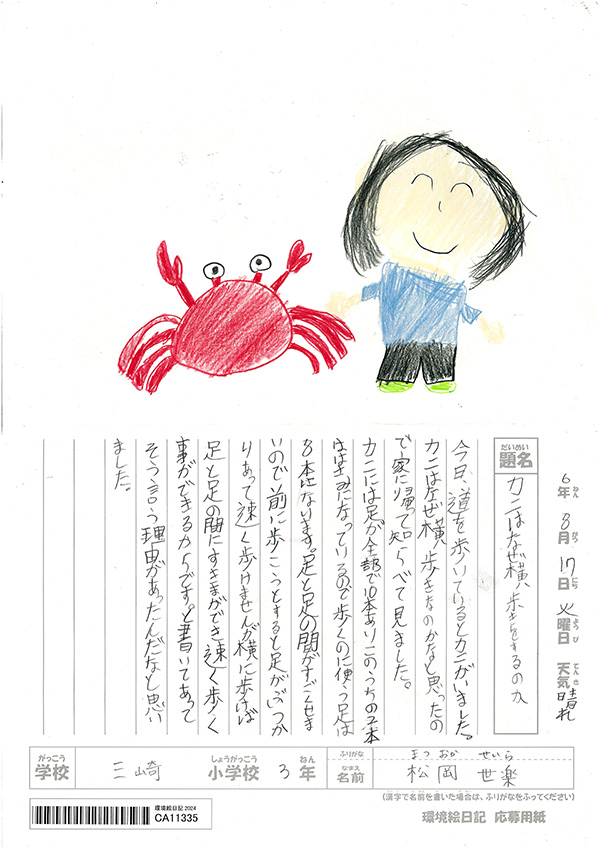 6年 8月 17日 火曜日 天気 晴れ
ねん がつ にち ようび てんき
だいめい
題名 カニはなぜ横歩きをするのか
今日、道を歩いているとカニがいました。
カニはなぜ横歩きなのかなと思ったの
で家に帰て知らべて見ました。
カニには足が全部で10本ありこのうちの2本
ははさみになっているので歩くのに使う足は
8本になります。足と足の間がすごくせま
いので前に歩こうとすると足がぶつか
りあって速く歩けませんが横に歩けば
足と足の間にすきまができ速く歩く
事ができるからです。と書いてあって
そう言う理由があったんだなと思い
ました。
がっこう しょうがっこう ねん
学校 三崎 小学校 3年
ふりがな まつおか せいら
なまえ
名前 松岡 世楽
(漢字で名前を書いた場合は、ふりがなをふってください)
環境絵日記 応募用紙
環境絵日記 2024
CA11335